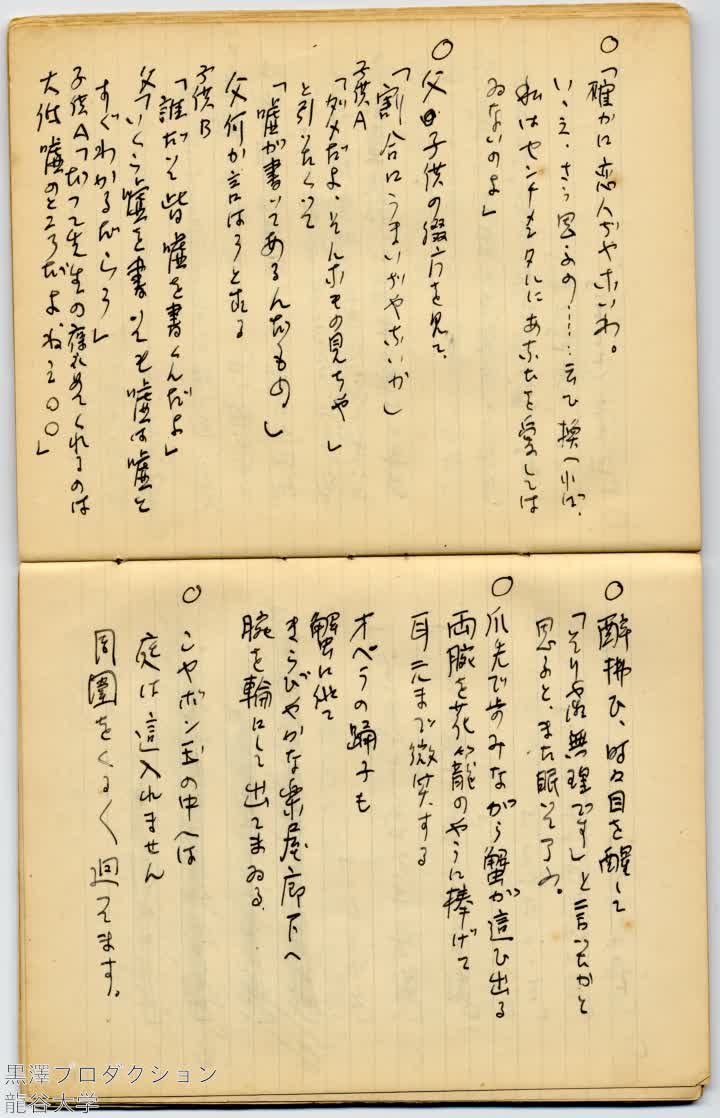 ○「確かに恋人ぢやないわ。
いゝえ、さう思ふの……云ひ換へれば、
私はセンチメンタルにあなたを愛しては
ゐないのよ」
○父子供の綴方を見て、
「割合にうまいぢやないか」
子供A
「ダメだよ、そんなもの見ちや」
と引いたくつて
「嘘が書いてあるんだもの」
父何か言はうとする
子供B
「誰だつて皆嘘を書くんだよ」
父「いくら嘘を書いても嘘は嘘と
すぐわかるだらう」
子供A「だつて先生の褒めてくれるのは
大体嘘のところだよねえ○○」
○酔拂ひ、時々目を醒して
「そりや無理です」と言つたかと
思ふと、また眠つて了ふ。
○爪先で歩みながら蟹が這ひ出る
両腕を花籠のやうに捧げて
耳元まで微笑する
オペラの踊子も
蟹に似て
きらびやかな楽屋廊下へ
腕を輪にして出てまゐる、
○シャボン玉の中へは
庭は這入れません
周囲をくるくる廻つてます。
黒澤プロダクション
龍谷大学